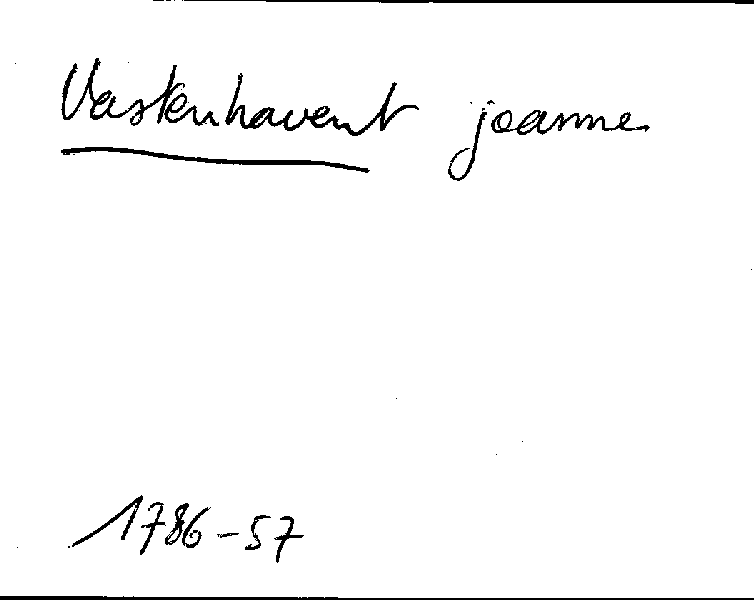 Vastenhavent joanne
1786-57